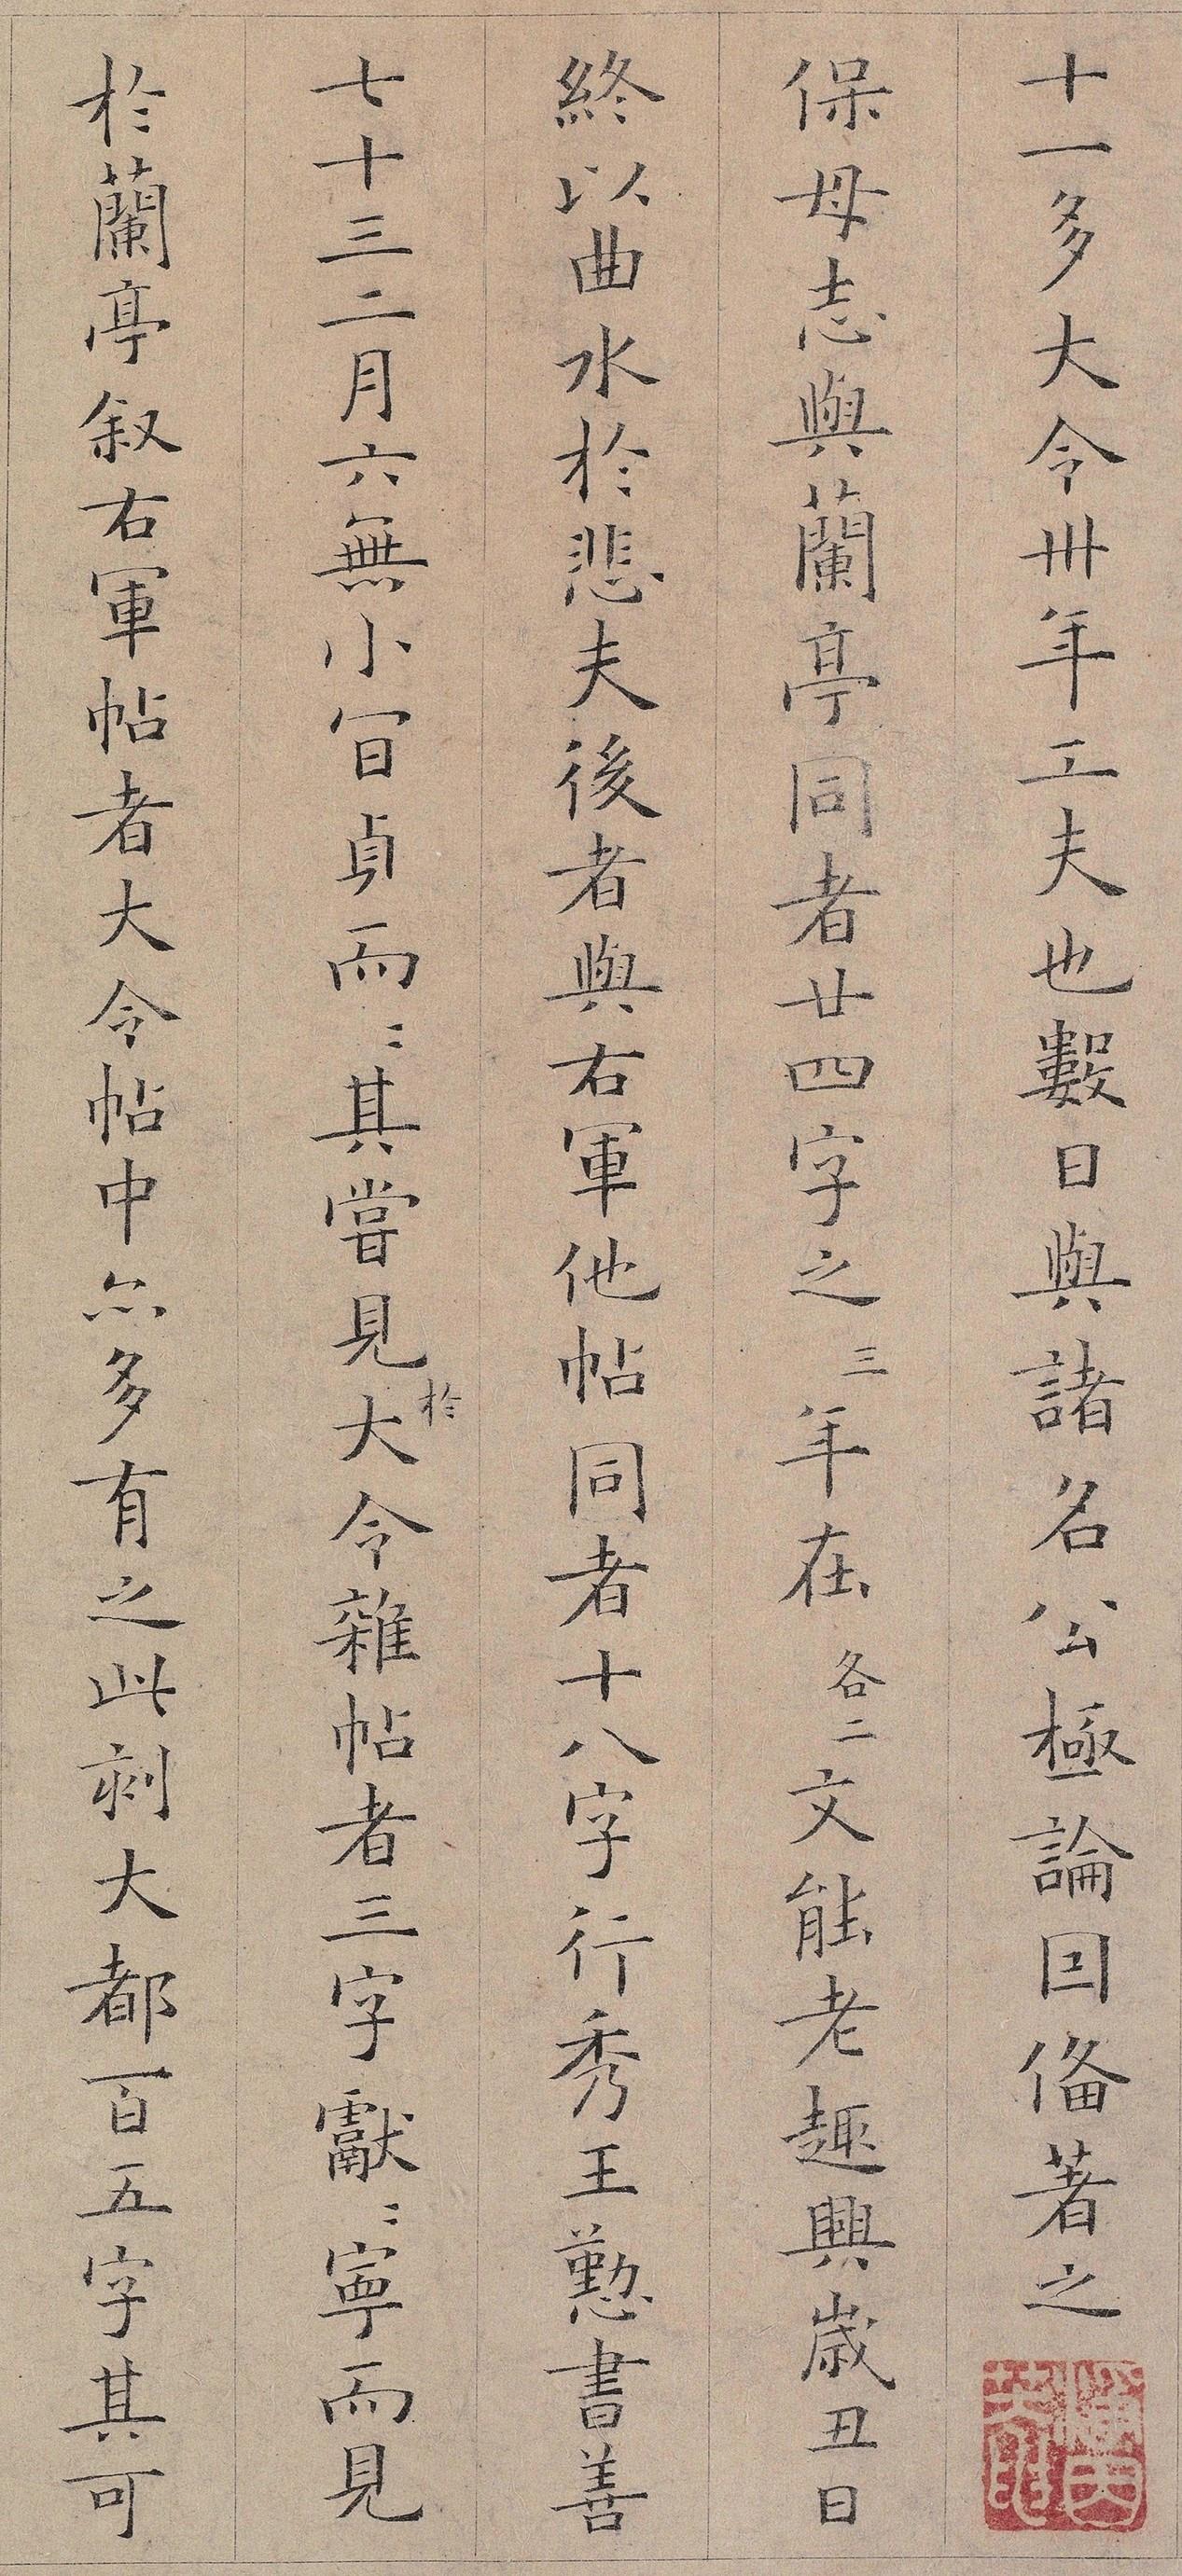 十一多大令卅年工夫也數日與諸名公極論回俻著之
保母志與蘭亭同者廿四字之三年在各二文能老趣興歲丑日
終以曲水於悲夫後者與右軍他帖同者十八字行秀王懃書善
七十三二月六無小冝貞而〻其嘗見於大令雜帖者三字獻〻寧而見
於蘭亭叙右軍帖者大令帖中亦多有之此刻大都一百五字其可